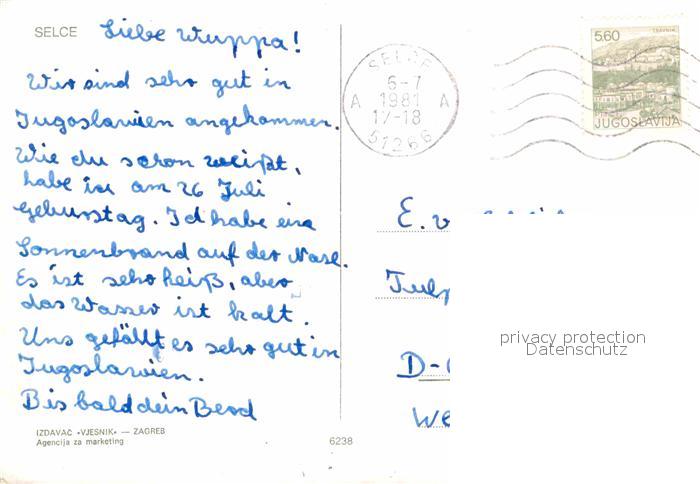 SELCE
Liebe Wuppa!
Wir sind sehr gut in
Jugoslawien angekommen.
Wie du schon weißt,
habe ich am 26 Juli
Geburstag. Ich habe ein
Sonnenbrand auf der Nase.
Es ist sehr heiß, aber
das Wasser ist kalt.
Uns gefällt es sehr gut in
Jugoslawien.
Bis bald dein
IZDAVAČ «VJESNIK» — ZAGREB
Agencija za marketing
6238
SELCE
6-7
1981
A A
17-18
51266
TRAVNIK
5,60
JUGOSLAVIJA
E. v
D-
We
privacy protection
Datenschutz